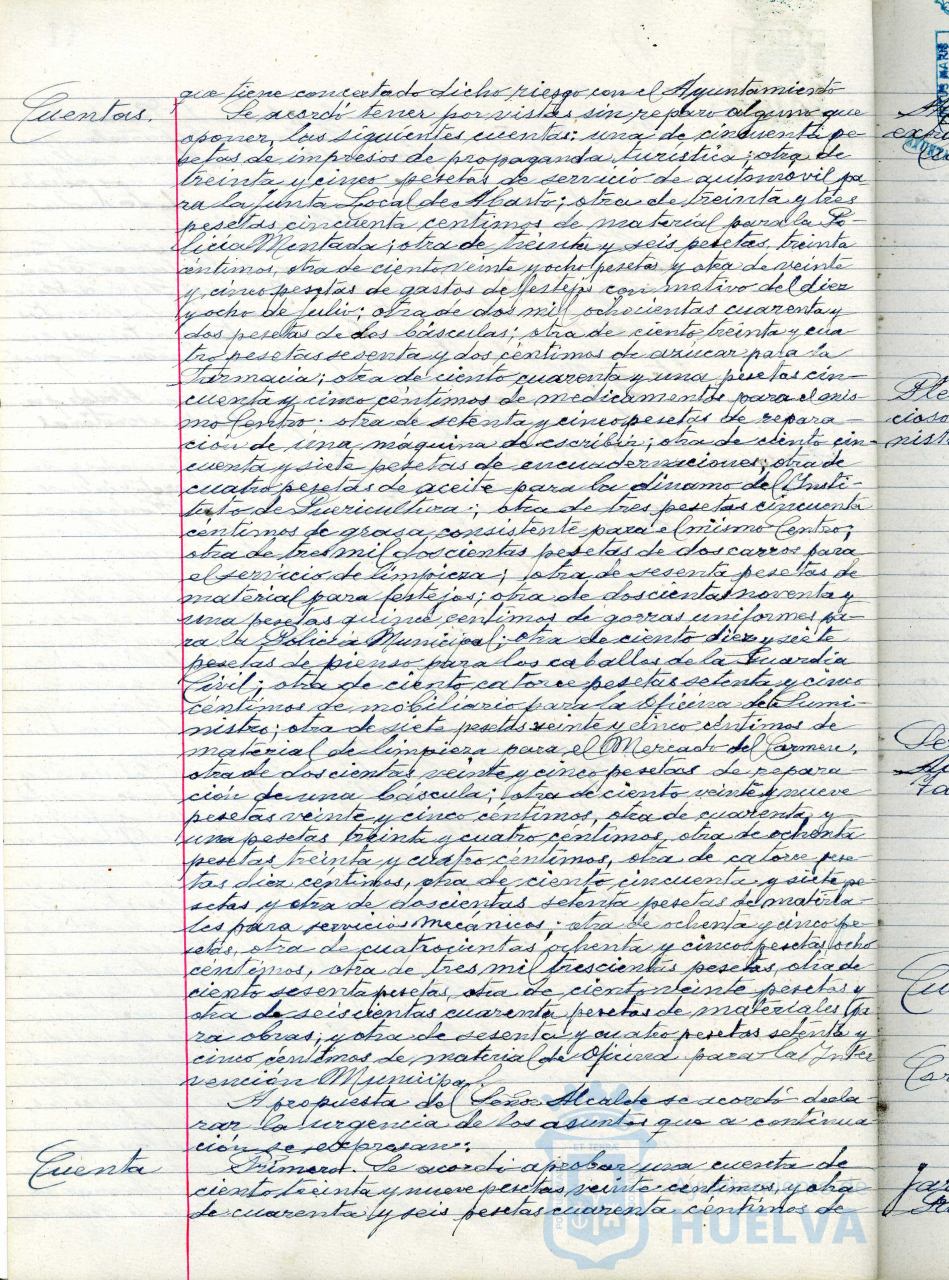 que tiene concertado dicho riesgo con el Ayuntamiento
Cuentas.
Se acordó tener por vistas sin reparo alguno que
oponer, las siguientes cuentas: una de cincuenta pe-
setas de impresos de propaganda turística; otra de
treinta y cinco pesetas de servicio de automóvil pa-
ra la Junta Local de Abasto; otra de treinta y tres
pesetas cincuenta centimos de material para la Po-
licia Montada; otra de treinta y seis pesetas, treinta
céntimos, otra de ciento veinte y ocho pesetas y otra de veinte
y cinco pesetas de gastos de festejos con motivo del diez
y ocho de julio; otra de dos mil ochocientas cuarenta y
dos pesetas de dos básculas; otra de ciento treinta y cua
tro pesetas sesenta y dos céntimos de azucar para la
Farmacia; otra de ciento cuarenta y una pesetas cin-
cuenta y cinco céntimos de medicamentos para el mis-
mo Centro: otra de setenta y cinco pesetas de repara-
ción de una máquina de escribir; otra de ciento cin-
cuenta y siete pesetas de encuadernaciones; otra de
cuatro pesetas de aceite para la dinamo del Insti-
tuto de Puericultura; otra de tres pesetas cincuenta
céntimos de grasa consistente para el mismo Centro;
otra de tres mil doscientas pesetas de dos carros para
el servicio de limpieza; otra de sesenta pesetas de
material para festejos; otra de doscientas noventa y
una pesetas quince centimos de gorras uniformes pa-
ra la Policia Municipal; otra de ciento diez y siete
pesetas de pienso para los caballos de la Guardia
Civil; otra de ciento catorce pesetas setenta y cinco
céntimos de mobiliario para la Oficina de Sumi-
nistro; otra de siete pesetas veinte y cinco céntimos de
material de limpieza para el Mercado del Carmen,
otra de doscientas veinte y cinco pesetas de repara-
ción de una báscula; otra de ciento veinte y nueve
pesetas veinte y cinco centimos, otra de cuarenta y
una pesetas treinta y cuatro céntimos, otra de ochenta
pesetas treinta y cuatro centimos, otra de catorce pese-
tas diez céntimos, otra de ciento cincuenta y siete pe-
setas y otra de doscientas setenta pesetas de materia-
les para servicios mecánicos; otra de ochenta y cinco pe-
setas, otra de cuatrocientas ochenta y cinco pesetas ocho
céntimos, otra de tres mil trescientas pesetas, otra de
ciento sesenta pesetas, otra de ciento veinte pesetas y
otra de seiscientas cuarenta pesetas de materiales pa-
ra obras; y otra de sesenta y cuatro pesetas setenta y
cinco céntimos de material de Oficina para la Inter
vención Municipal.
A propuesta del Señor Alcalde se acordó decla-
rar la urgencia de los asuntos que a continua-
ción se expresan:
Cuenta
Primero. Se acordó aprobar una cuenta de
ciento treinta y nueve pesetas, veinte centimos, y otra
de cuarenta y seis pesetas cuarenta centimos de
HUELVA